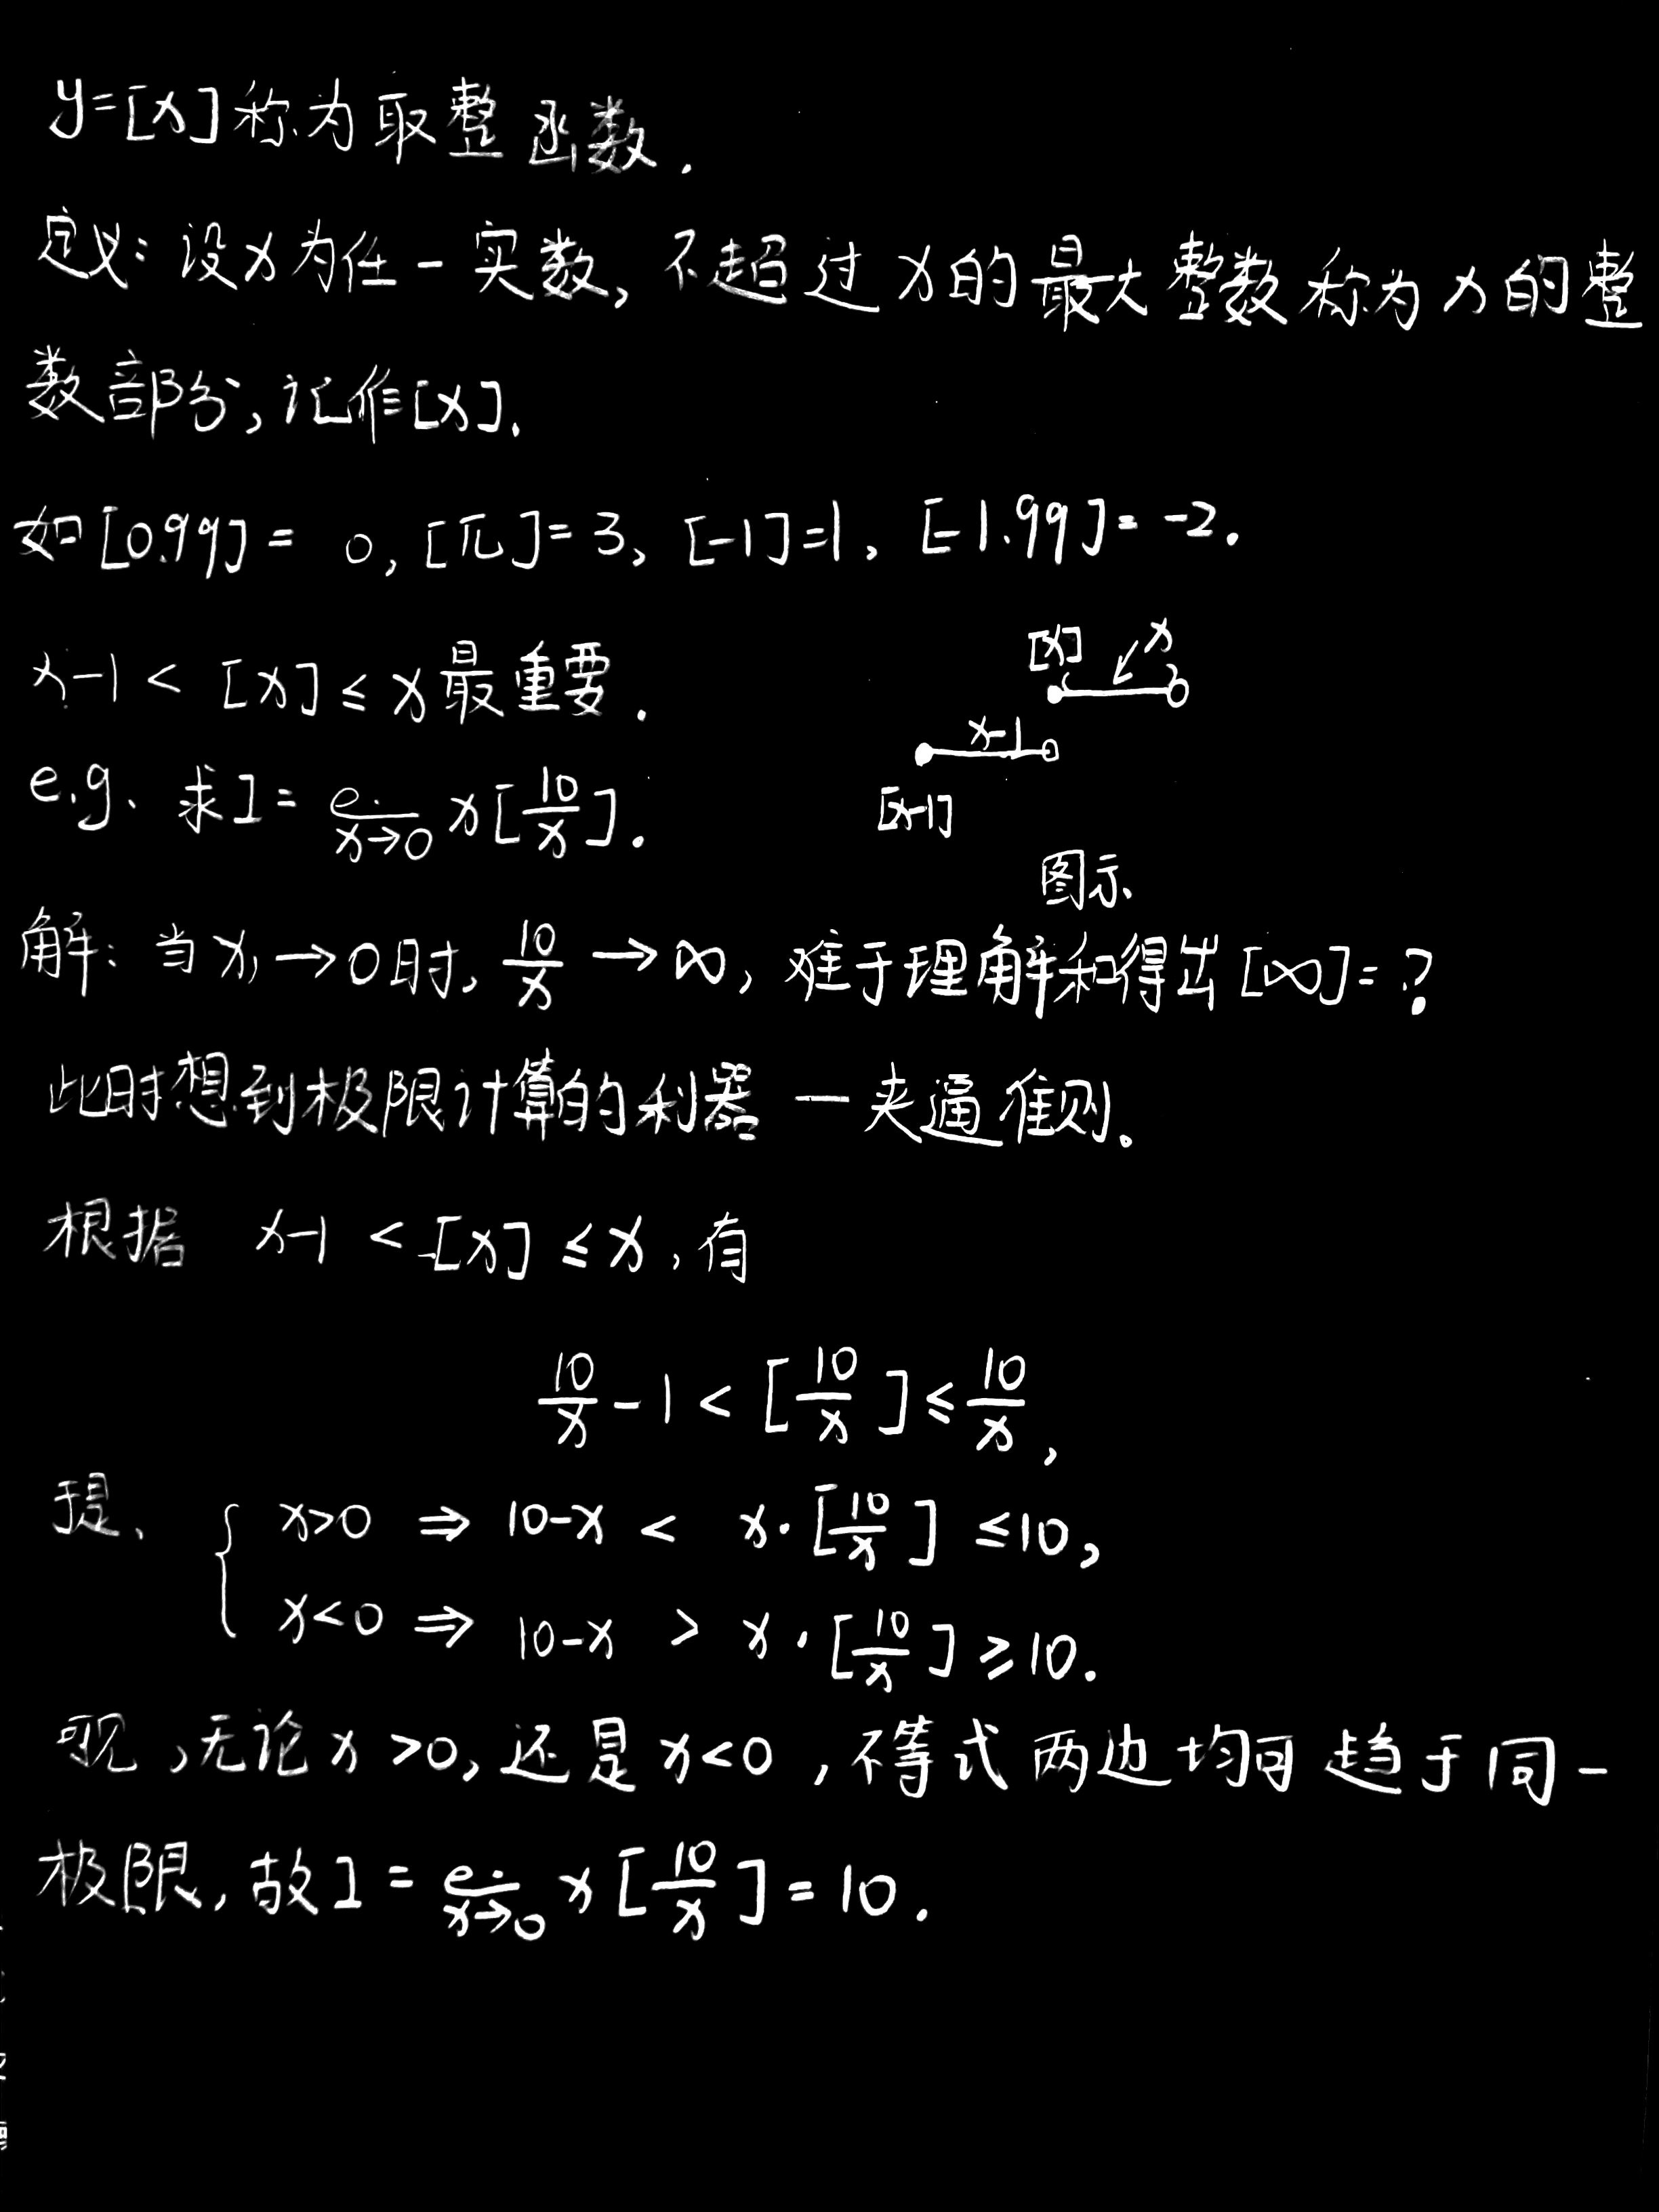 y=[x]称为取整函数.
定义:设x为任一实数,不超过x的最大整数称为x的整
数部分,记作[x].
如[0.99]= 0,[π]=3,[-1]=1,[-1.99]=-2.
x-1 < [x] ≤ x 最重要.
[x] x
x-1
[x-1]
图示
e.g. 求I= e· x→0 x[10/x].
解:当x→0时,10/x →∞,难于理解和得出[∞]=?
此时想到极限计算的利器 一夹逼准则.
根据 x-1 < [x] ≤ x,有
10/x -1 < [10/x] ≤ 10/x,
{ x>0 ⇒ 10-x < x·[10/x] ≤10,
x<0 ⇒ 10-x > x·[10/x] ≥10.
可见,无论x>0,还是x<0,不等式两边均可趋于同一
极限,故I= e· x→0 x[10/x]=10.